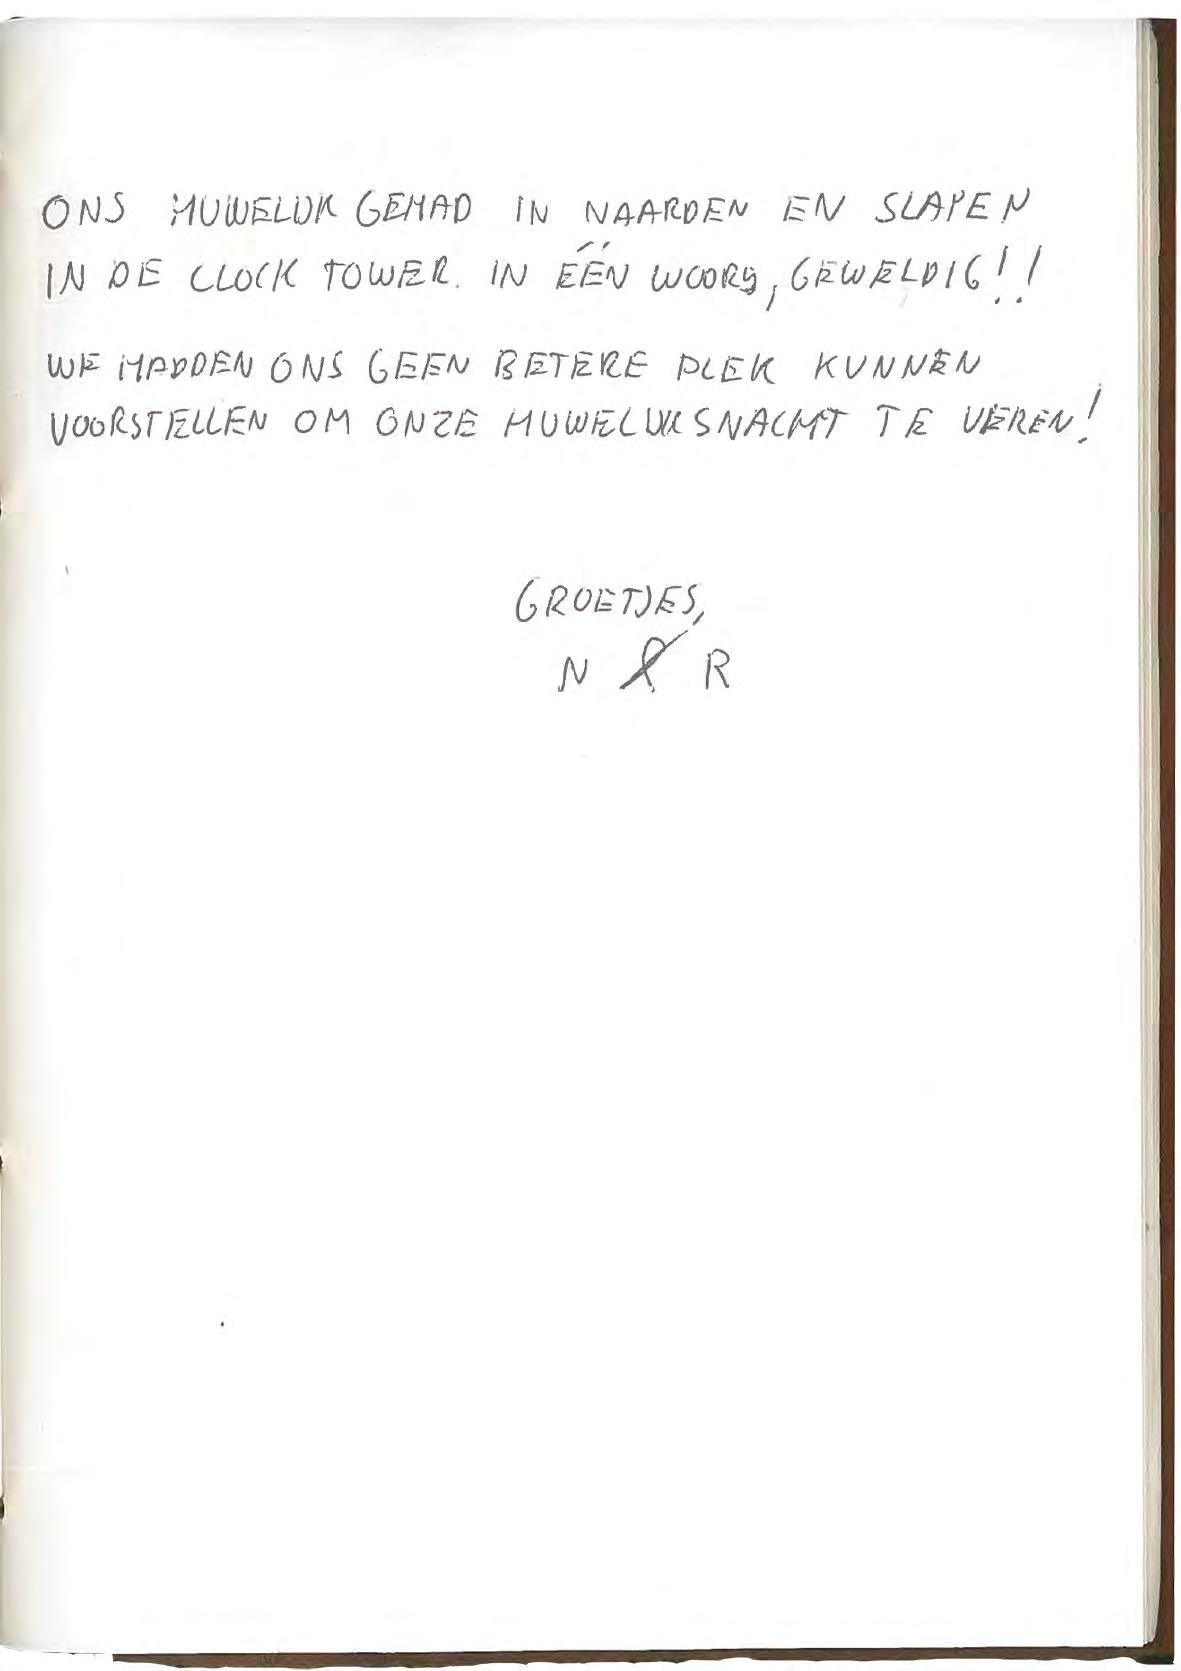 ONS HUWELIJK GEHAD IN NAARDEN EN SLAPEN
IN DE CLOCK TOWER. IN ÉÉN WOORD, GEWELDIG!!
WE HADDEN ONS GEEN BETERE PLEK KUNNEN
VOORSTELLEN OM ONZE HUWELIJKSNACHT TE VIEREN!
GROETJES,
N & R